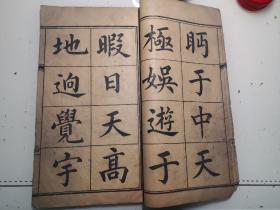 眄于中天
極娛遊于
暇日天高
地逈覺宇